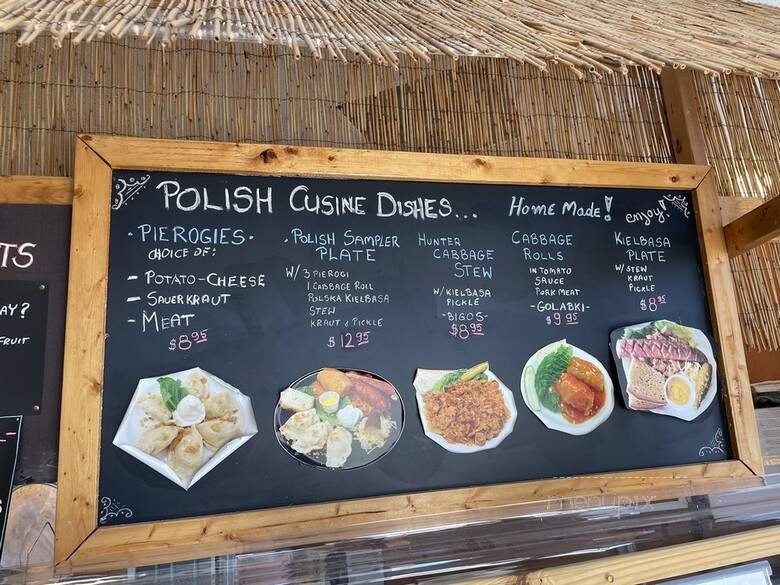 POLISH CUSINE DISHES... HOME MADE! enjoy!
· PIEROGIES ·
CHOICE OF:
- POTATO-CHEESE
- SAUERKRAUT
- MEAT
$8.95
· POLISH SAMPLER
PLATE
W/ 3 PIEROGI
1 CABBAGE ROLL
POLSKA KIELBASA
STEW
KRAUT & PICKLE
$12.95
HUNTER
CABBAGE
STEW
W/ KIELBASA
PICKLE
-BIGOS-
$8.95
CABBAGE
ROLLS
IN TOMATO
SAUCE
PORK MEAT
-GOLABKI-
$9.95
KIELBASA
PLATE
W/ STEW
KRAUT
PICKLE
$8.95
TS
AY?
FRUIT
menupix